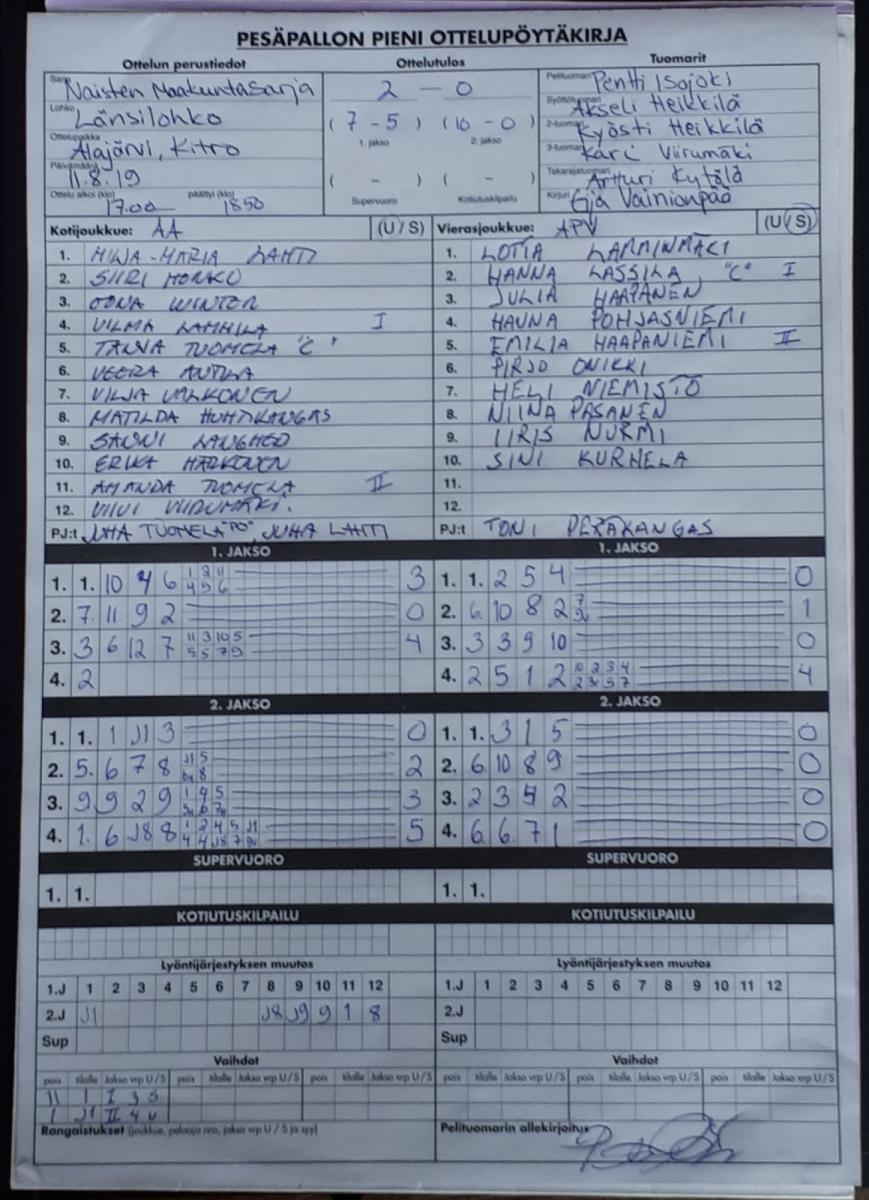 PESÄPALLON PIENI OTTELUPÖYTÄKIRJA
Ottelun perustiedot Ottelutulos Tuomarit
Sarja Naisten Maakuntasarja
Lohko Länsilohko
Ottelupaikka Alajärvi, Kitro
Päivämäärä 11.8.19
Ottelu alkoi (klo) 17.00 päättyi (klo) 1850
2 - 0
(7 - 5) (10 - 0)
1. jakso 2. jakso
( - ) ( - )
Supervuoro Kotiutuskilpailu
Pelituomari Pentti Isojoki
Syöttötuomari Akseli Heikkilä
2-tuomari Kyösti Heikkilä
3-tuomari Kari Viirumäki
Takarajatuomari Artturi Kytölä
Kirjuri Eija Vainionpää
Kotijoukkue: AA (U / S)
1. MILJA-MARIA LAHTI
2. SIIRI HONKO
3. OONA WINTER
4. VILMA LAMMILA I
5. TAIJA TUOMELA "C"
6. VEERA ANTILA
7. VILJA VALKONEN
8. MATILDA HUHTIKANGAS
9. SAUNI LANGHED
10. ERIKA HARKONEN
11. AMANDA TUOMELA II
12. VIIVI VIIRUMÄKI.
PJ:t JUHA TUOMELA "PO", JUHA LAHTI
Vierasjoukkue: APV (U / S)
1. LOTTA LAMMINMÄKI
2. HANNA LASSILA "C" I
3. JULIA HAAPANEN
4. HAUNA POHJASNIEMI
5. EMILIA HAAPANIEMI II
6. PIRJO ONIKKI
7. HELI NIEMISTÖ
8. NIINA PASANEN
9. IIRIS NURMI
10. SINI KURHELA
11.
12.
PJ:t TONI PERÄKANGAS
1. JAKSO
1. 1. 10 4 6 3
2. 7. 11 9 2 0
3. 3 6 12 7 11 3 10 5 5 5 7 9 4
4. 2
1. JAKSO
1. 1. 2 5 4 0
2. 6. 10 8 2 1
3. 3 3 9 10 0
4. 2 5 1 2 4
2. JAKSO
1. 1. 1 J1 3 0
2. 5. 6 7 8 2
3. 9 9 2 9 3
4. 1. 6 J8 8 5
2. JAKSO
1. 1. 3 1 5 0
2. 6 10 8 9 0
3. 2 3 5 2 0
4. 6 6 7 1 0
SUPERVUORO SUPERVUORO
1. 1. 1. 1.
KOTIUTUSKILPAILU KOTIUTUSKILPAILU
Lyöntijärjestyksen muutos Lyöntijärjestyksen muutos
1.J 1 2 3 4 5 6 7 8 9 10 11 12 1.J 1 2 3 4 5 6 7 8 9 10 11 12
2.J J1 J8 J9 9 1 8 2.J
Sup Sup
Vaihdot Vaihdot
pois tilalle Jakso vrp U/S pois tilalle Jakso vrp U/S pois tilalle Jakso vrp U/S pois tilalle Jakso vrp U/S pois tilalle Jakso vrp U/S pois tilalle Jakso vrp U/S
11 1 I 3 S
1 J1 II 4 U
Rangaistukset (joukkue, pelaaja nro, jakso vrp U / S ja syy) Pelituomarin allekirjoitus